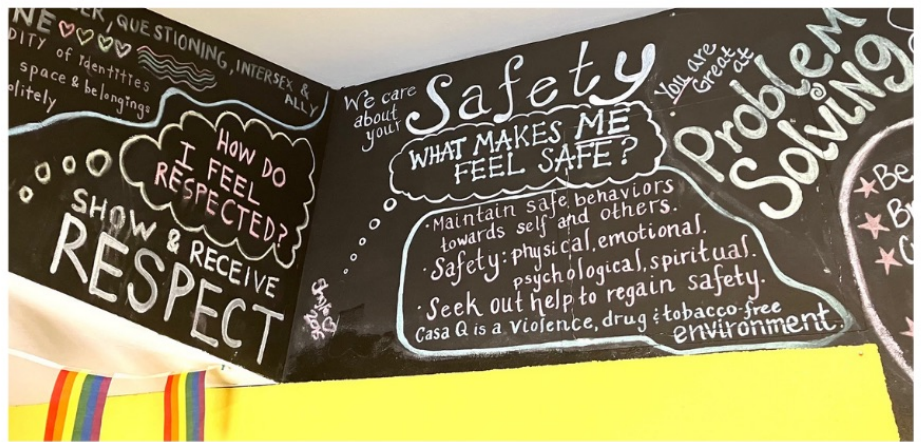 QUESTIONING, INTERSEX &
ALLY
of identities
space & belongings
HOW DO
I FEEL
RESPECTED?
SHOW & RECEIVE
RESPECT
We care
about
your
Safety
WHAT MAKES ME
FEEL SAFE?
· Maintain safe behaviors
towards self and others.
· Safety: physical, emotional.
psychological, spiritual.
· Seek out help to regain safety.
Casa Q is a violence, drug & tobacco-free
environment.
You are
Great
at
PROBLEM
SOLVING